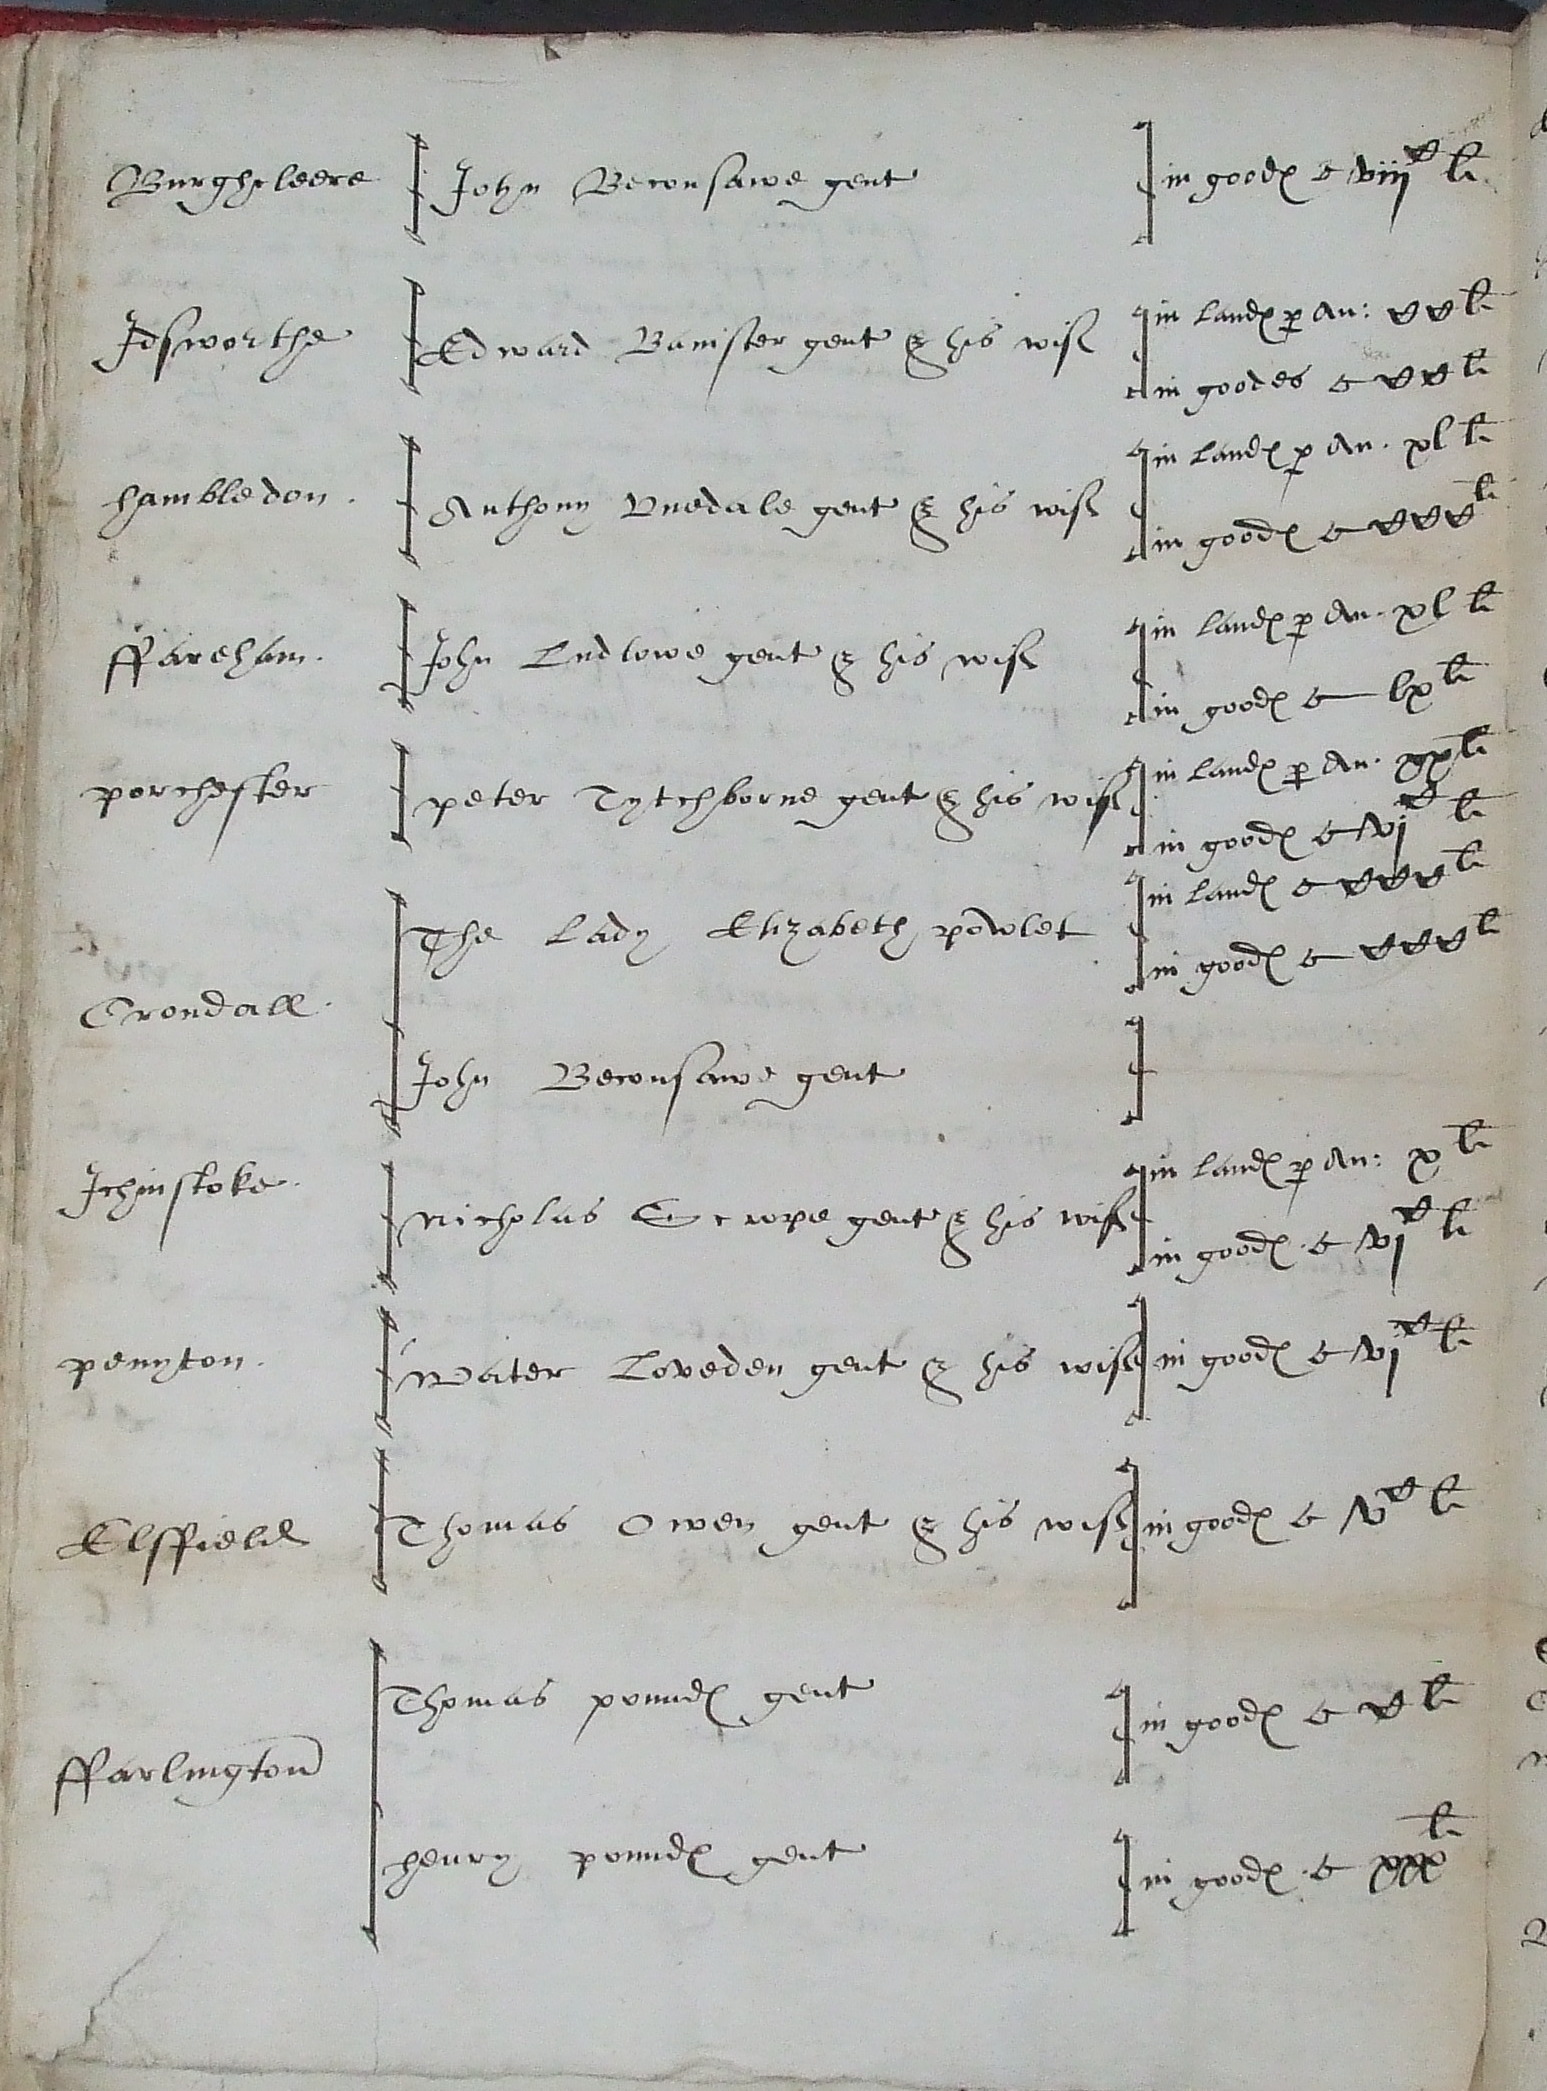 Burghcleere John Beconsawe gent in goodes C viij^C li
Idsworthe Edward Banister gent & his wife in landes per An: CC li
in goodes CC li
hambledon. Anthony Uvedale gent & his wife in landes per An. xl li
in goodes CCC li
ffareham. John Ludlowe gent & his wife in landes per An. xl li
in goodes lx li
porchester peter Tytchborne gent & his wife in landes per An. xx li
in goodes vj^C li
Crondall. The Lady Elizabeth powlet in landes CCC li
in goodes CCC li
John Beconsawe gent
Ichinstoke. Nicholas Scrope gent & his wife in landes per An: x li
in goodes vj^C li
penyton. Water Loveden gent & his wife in goodes vj^C li
Elsffield Thomas Owen gent & his wife in goodes v^C li
ffarlington Thomas poundes gent in goodes C li
henry poundes gent in goodes xxx li